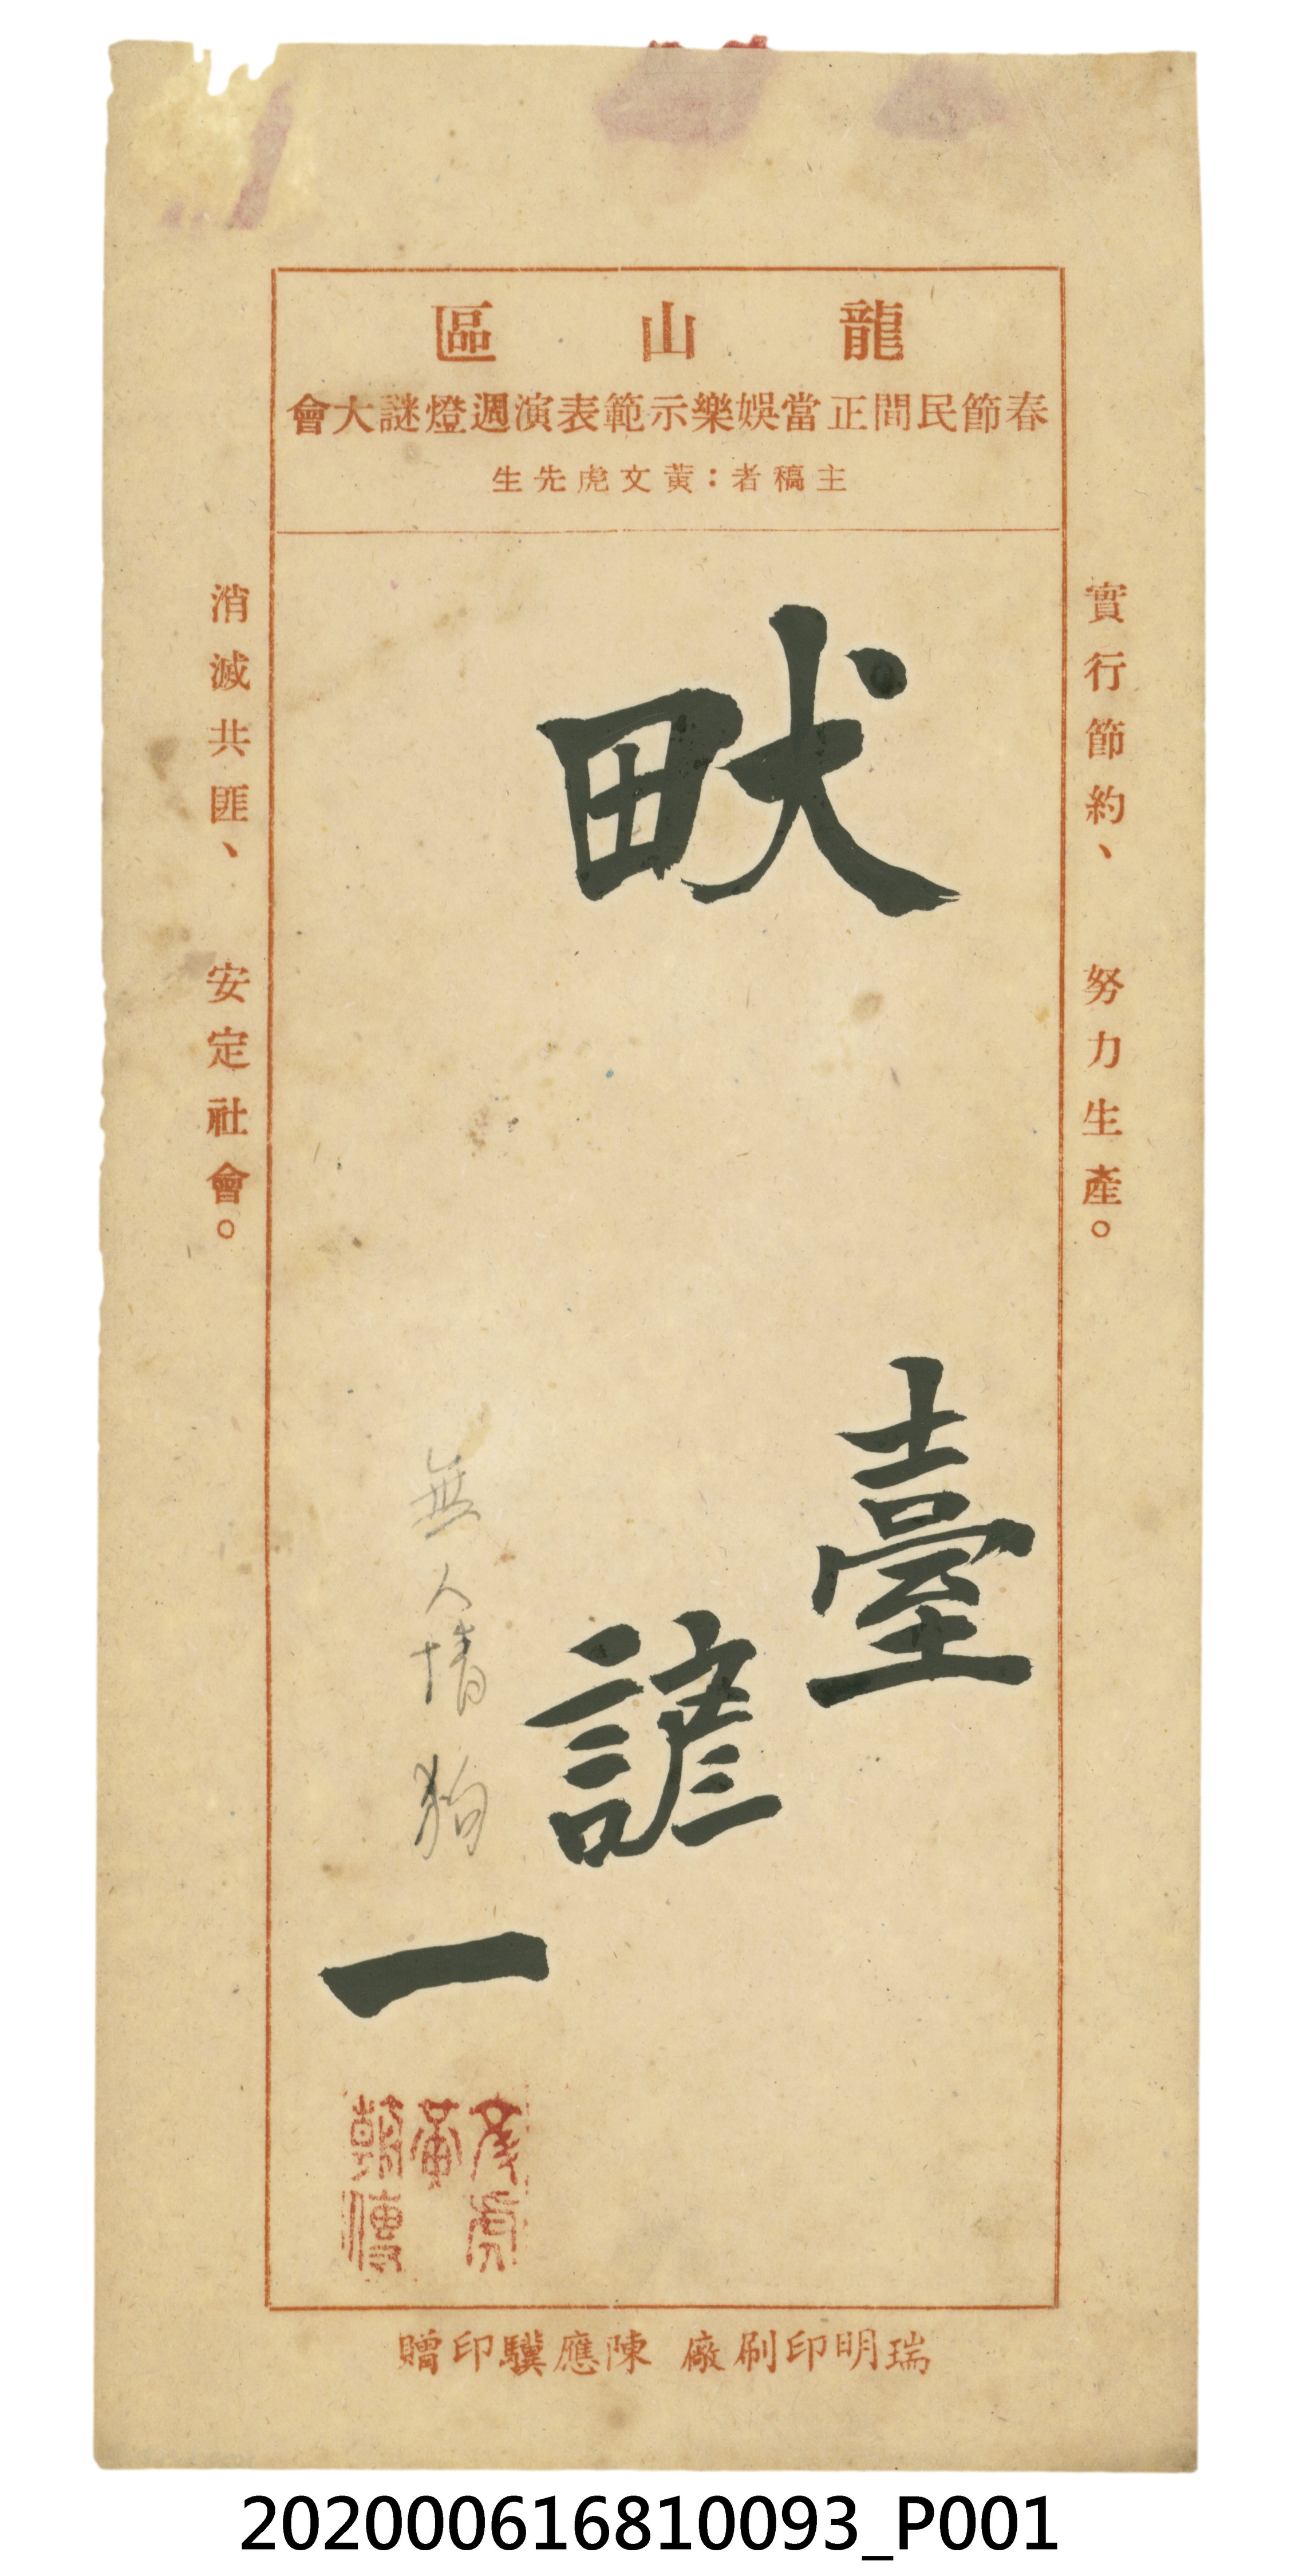 龍山區
春節民間正當娛樂示範表演週燈謎大會
主稿者：黃文虎先生
實行節約、努力生產。
畎
臺
諺
一
無人情狗
消滅共匪、安定社會。
瑞明印刷廠 陳應驥印贈
202000616810093_P001